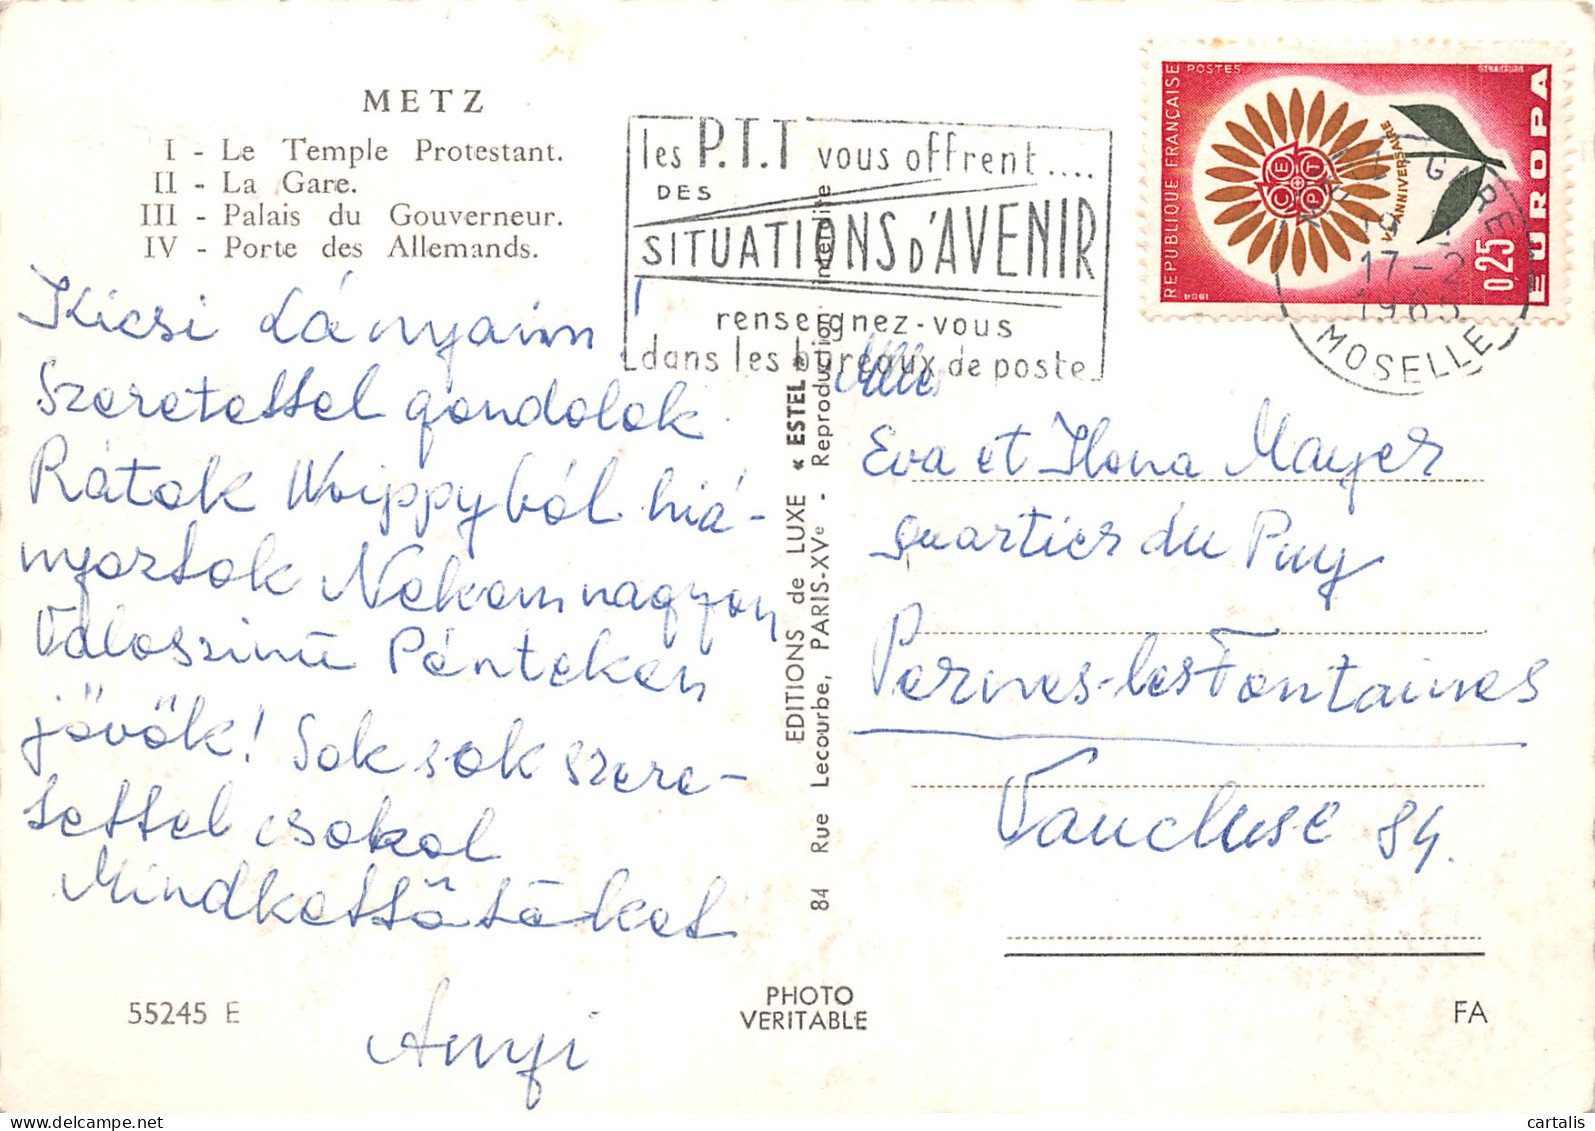 METZ
I - Le Temple Protestant.
II - La Gare.
III - Palais du Gouverneur.
IV - Porte des Allemands.
Kicsi Lányaim
Szeretettel gondolok
Rátok Woippyból hiá-
nyoztok Nekem nagyon
Valoszinü Pénteken
jövök! Sok sok szere-
tettel csokol
Mindkettötöket
Anyi
55245 E
PHOTO
VERITABLE
FA
EDITIONS de LUXE « ESTEL »
84 Rue Lecourbe, PARIS-XVe - Reproduction interdite
les P.T.T vous offrent....
DES
SITUATIONS D'AVENIR
renseignez-vous
dans les bureaux de poste
REPUBLIQUE FRANÇAISE
POSTES
EUROPA
0,25
Ve ANNIVERSAIRE
CEPT
1964
METZ GARE
19 H
17-2
1965
MOSELLE
Mlles
Eva et Ilona Mayer
quartier du Puy
Pernes-les Fontaines
Vaucluse 84.
cartalis
www.delcampe.net